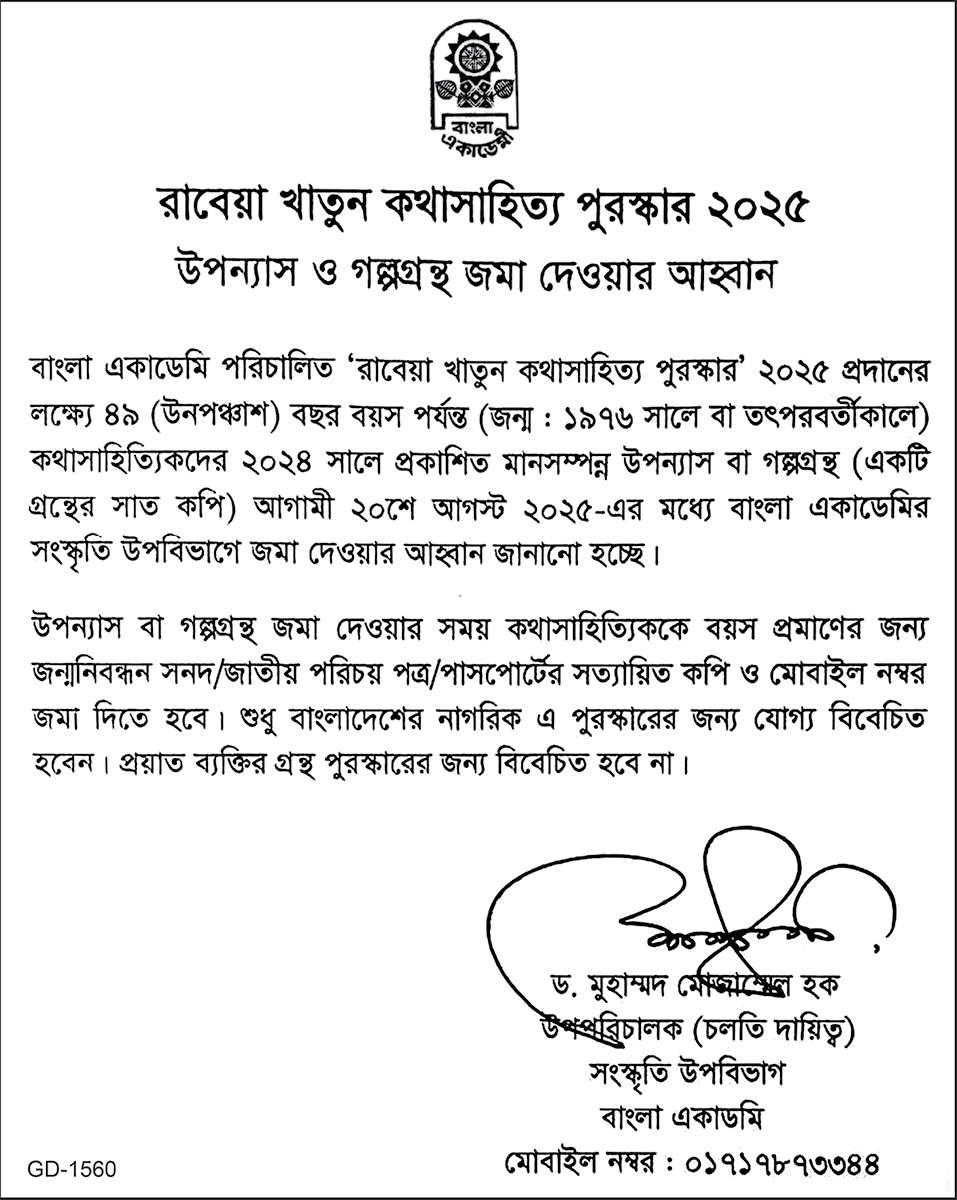 বাংলা
একাডেমী
রাবেয়া খাতুন কথাসাহিত্য পুরস্কার ২০২৫
উপন্যাস ও গল্পগ্রন্থ জমা দেওয়ার আহ্বান
বাংলা একাডেমি পরিচালিত ‘রাবেয়া খাতুন কথাসাহিত্য পুরস্কার’ ২০২৫ প্রদানের
লক্ষ্যে ৪৯ (উনপঞ্চাশ) বছর বয়স পর্যন্ত (জন্ম : ১৯৭৬ সালে বা তৎপরবর্তীকালে)
কথাসাহিত্যিকদের ২০২৪ সালে প্রকাশিত মানসম্পন্ন উপন্যাস বা গল্পগ্রন্থ (একটি
গ্রন্থের সাত কপি) আগামী ২০শে আগস্ট ২০২৫-এর মধ্যে বাংলা একাডেমির
সংস্কৃতি উপবিভাগে জমা দেওয়ার আহ্বান জানানো হচ্ছে।
উপন্যাস বা গল্পগ্রন্থ জমা দেওয়ার সময় কথাসাহিত্যিককে বয়স প্রমাণের জন্য
জন্মনিবন্ধন সনদ/জাতীয় পরিচয় পত্র/পাসপোর্টের সত্যায়িত কপি ও মোবাইল নম্বর
জমা দিতে হবে। শুধু বাংলাদেশের নাগরিক এ পুরস্কারের জন্য যোগ্য বিবেচিত
হবেন। প্রয়াত ব্যক্তির গ্রন্থ পুরস্কারের জন্য বিবেচিত হবে না।
ড. মুহাম্মদ মোজাম্মেল হক
উপপরিচালক (চলতি দায়িত্ব)
সংস্কৃতি উপবিভাগ
বাংলা একাডমি
মোবাইল নম্বর : ০১৭১৭৮৭৩৩৪৪
GD-1560